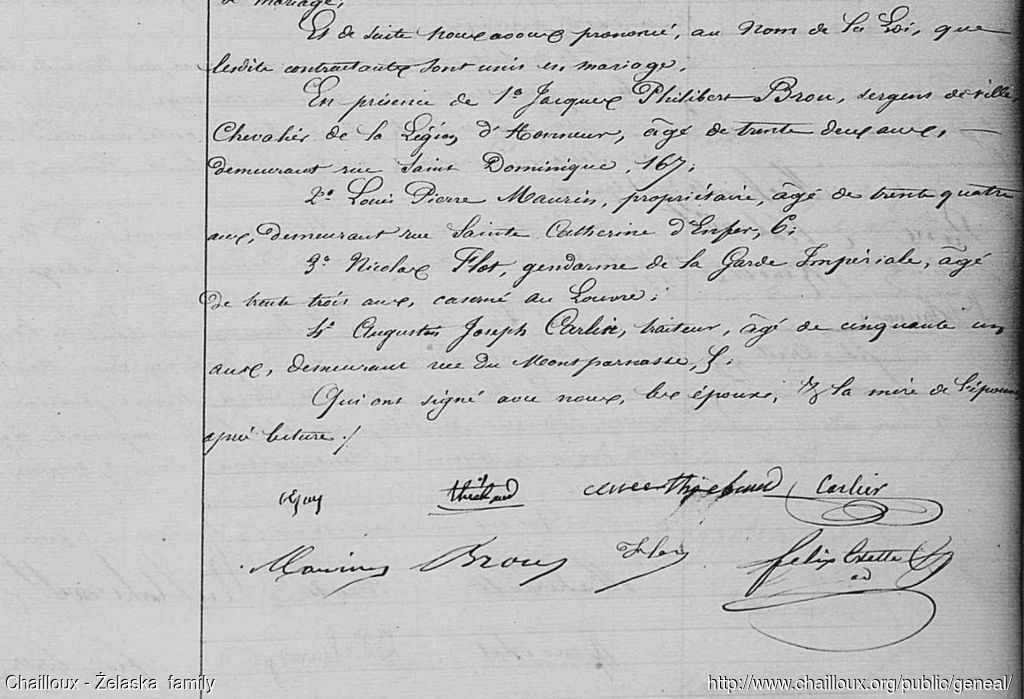 de mariage;
Et de suite nous avons prononcé, au nom de la Loi, que
lesdits contractants sont unis en mariage;
En présence de 1° Jacques Philibert Brou, sergent de ville,
Chevalier de la Légion d'Honneur, âgé de trente deux ans, —
demeurant rue Saint Dominique, 167;
2° Louis Pierre Maurin, propriétaire, âgé de trente quatre
ans, demeurant rue Sainte Catherine d'Enfer, 6;
3° Nicolas Flot, gendarme de la Garde Impériale, âgé
de trente trois ans, caserné au Louvre;
4° Augustin Joseph Carlier, traiteur, âgé de cinquante un
ans, demeurant rue du Montparnasse, 5;
Qui ont signé avec nous, les époux, & la mère de l'épouse
après lecture ./.
thiebaud Carlier
Maurin Brou Flot felix
Chailloux - Želaska family http://www.chailloux.org/public/geneal/